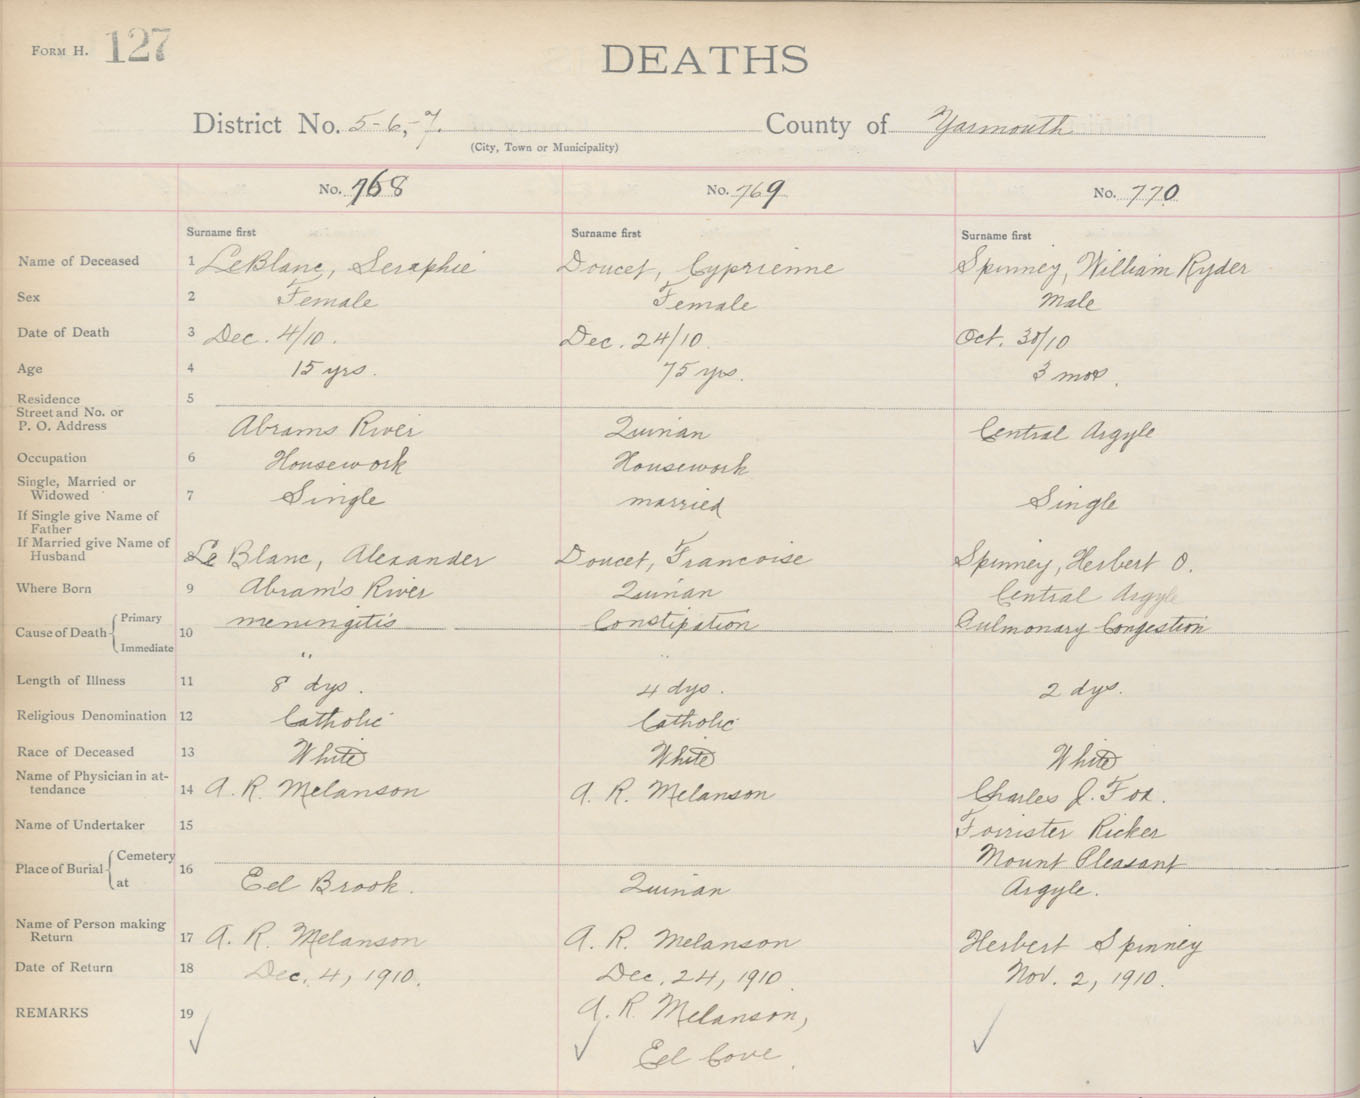 FORM H. 127
DEATHS
District No. 5-6,-7. County of Yarmouth
(City, Town or Municipality)
No. 768 No. 769 No. 770
Surname first Surname first Surname first
Name of Deceased 1 LeBlanc, Seraphie Doucet, Cyprienne Spinney, William Ryder
Sex 2 Female Female Male
Date of Death 3 Dec. 4/10. Dec. 24/10. Oct. 30/10
Age 4 15 yrs. 75 yrs. 3 mos.
Residence 5
Street and No. or
P. O. Address Abrams River Quinan Central Argyle
Occupation 6 Housework Housework
Single, Married or
Widowed 7 Single married Single
If Single give Name of
Father
If Married give Name of
Husband 8 Le Blanc, Alexander Doucet, Francoise Spinney, Herbert O.
Where Born 9 Abram's River Quinan Central Argyle
Cause of Death 10 Primary meningitis Constipation Pulmonary Congestion
Immediate " "
Length of Illness 11 8 dys. 4 dys. 2 dys.
Religious Denomination 12 Catholic Catholic
Race of Deceased 13 White White White
Name of Physician in at-
tendance 14 A. R. Melanson A. R. Melanson Charles J. Fox.
Name of Undertaker 15 Forrister Ricker
Place of Burial 16 Cemetery Mount Pleasant
at Eel Brook. Quinan Argyle.
Name of Person making
Return 17 A. R. Melanson A. R. Melanson Herbert Spinney
Date of Return 18 Dec. 4, 1910. Dec. 24, 1910. Nov. 2, 1910.
REMARKS 19 ✓ A. R. Melanson, ✓
✓ Eel Cove.